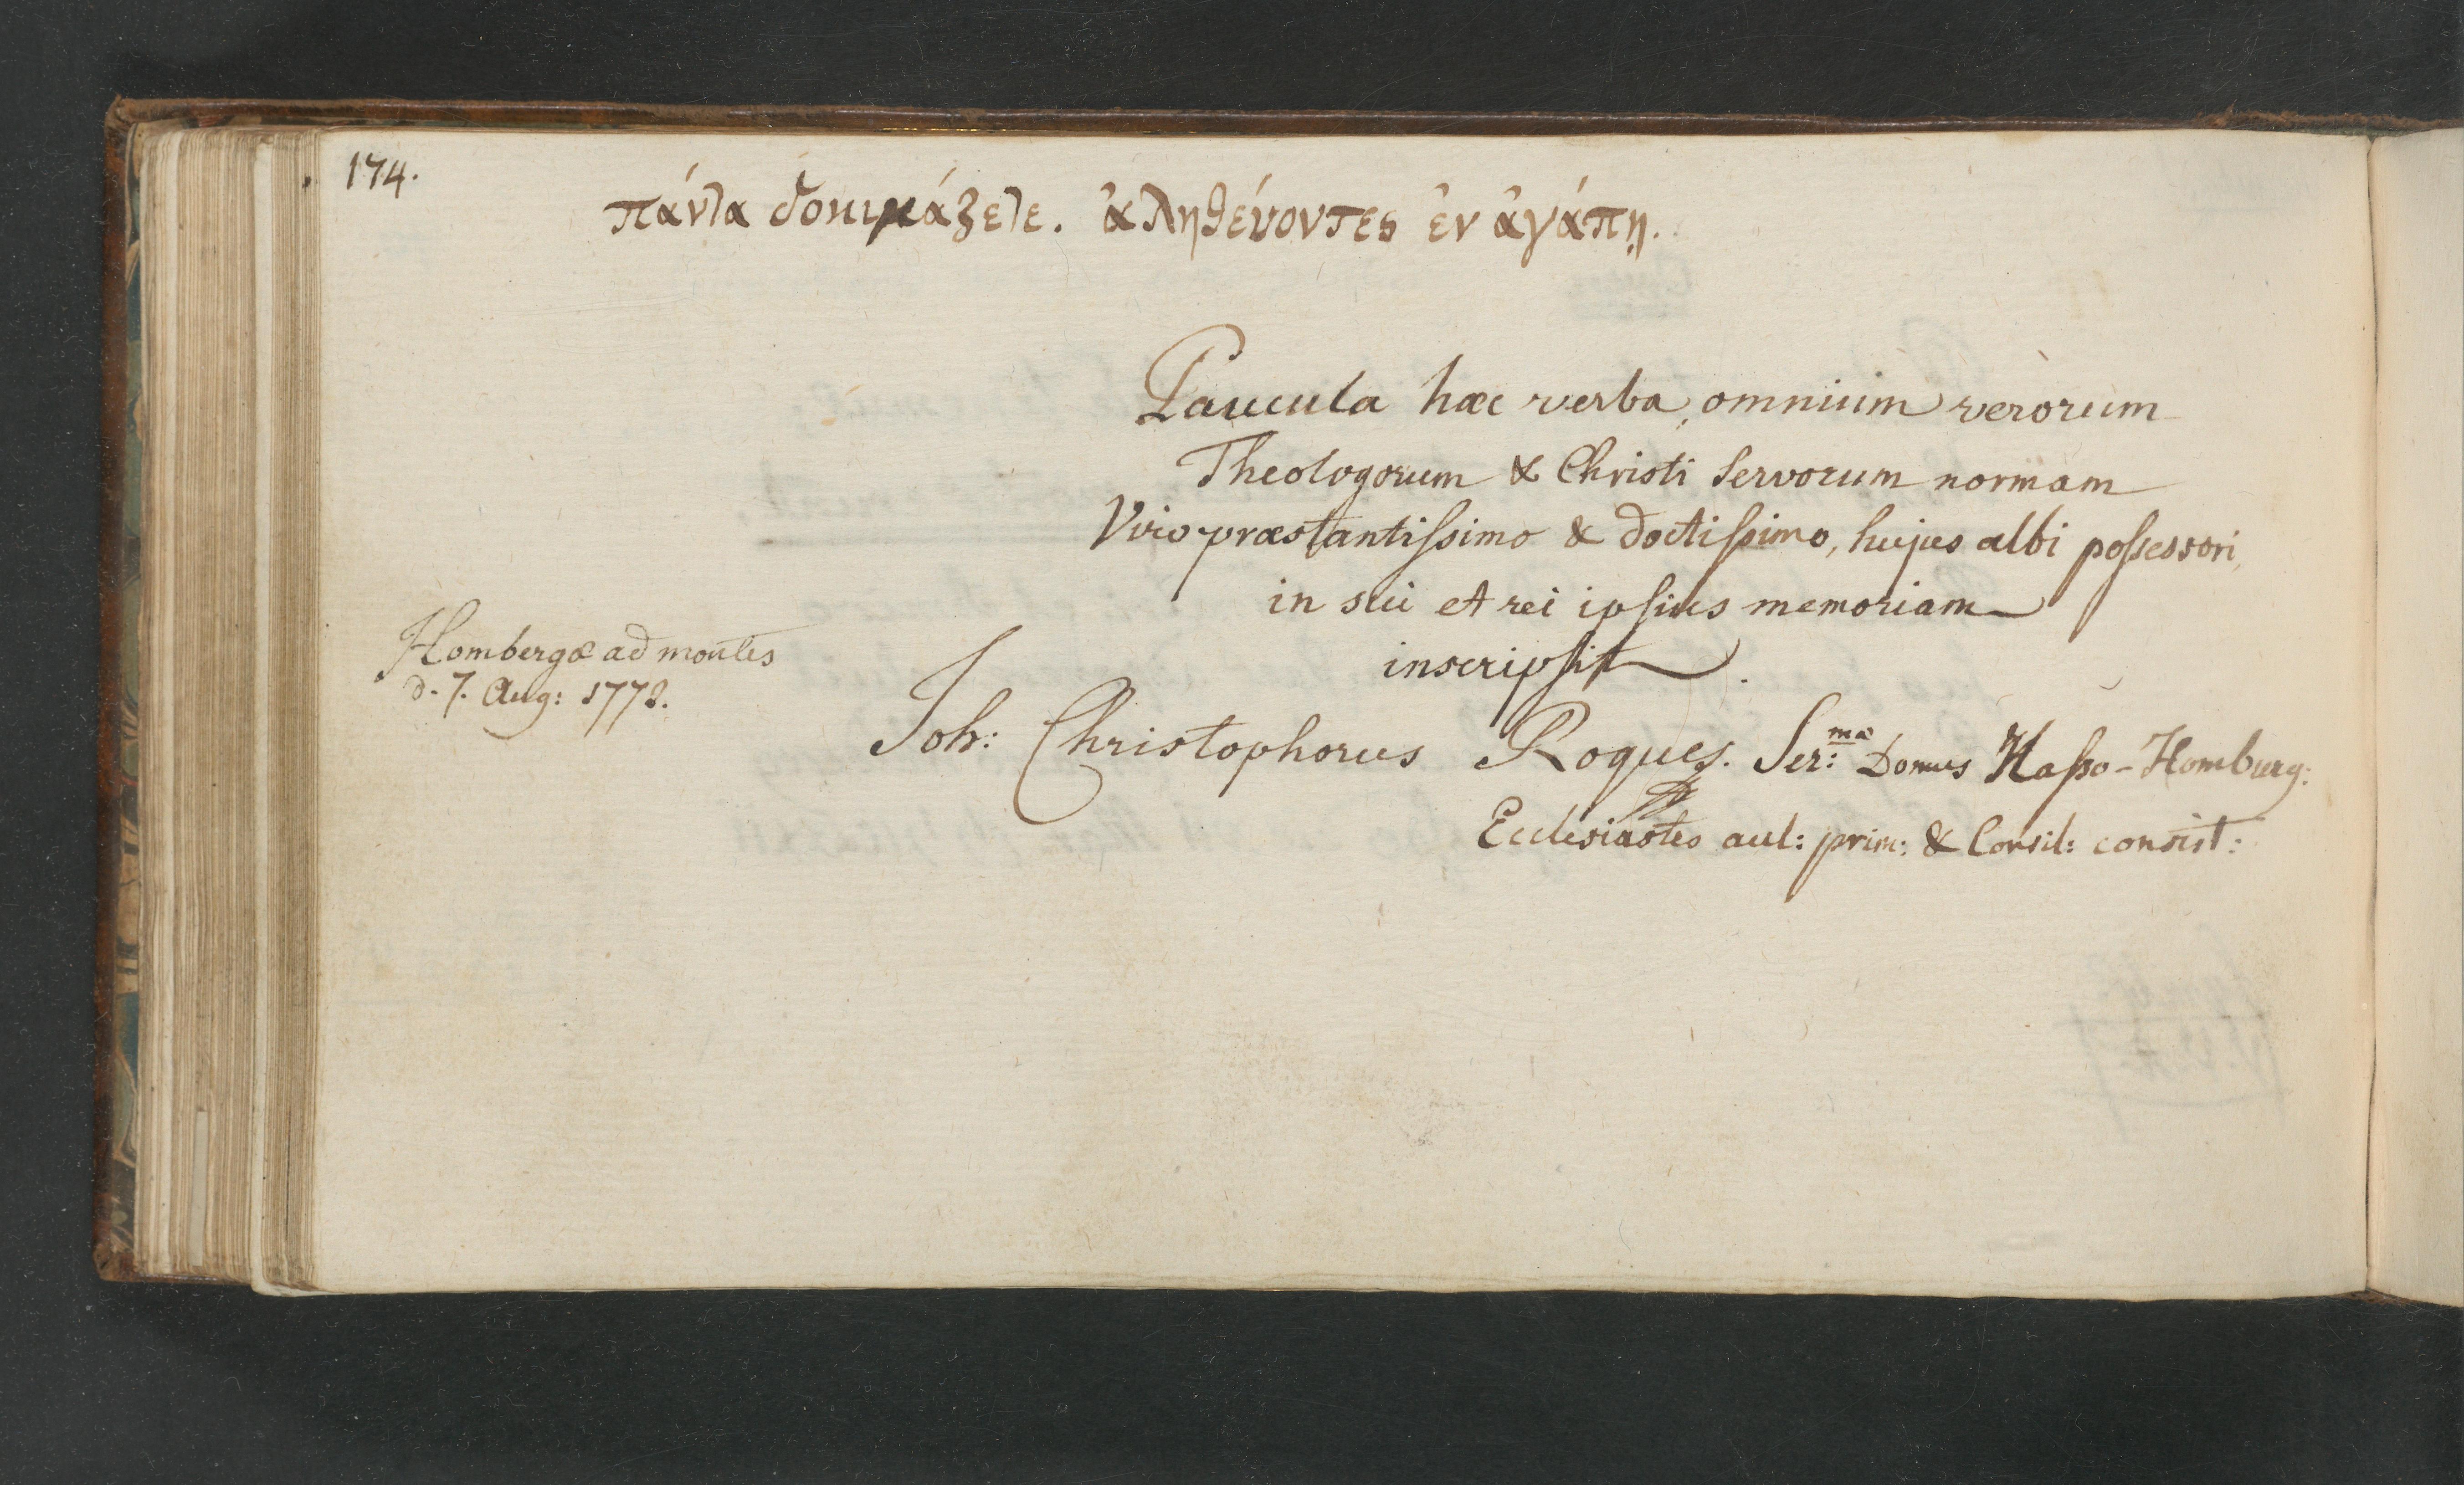 174.
πάντα δοκιμάζετε. ἀληθέυοντες ἐν ἀγάπῃ.
Paucula hæc verba, omnium verorum
Theologorum & Christi Servorum normam
Viro præstantissimo & doctissimo, hujus albi possessori,
in sui et rei ipsius memoriam
inscripsit.
Hombergæ ad montes
d. 7. Aug: 1772.
Joh: Christophorus Roques. Ser:mæ Domus Hasso-Homburg:
Ecclesiastes aul: prim: & Consil: consist: